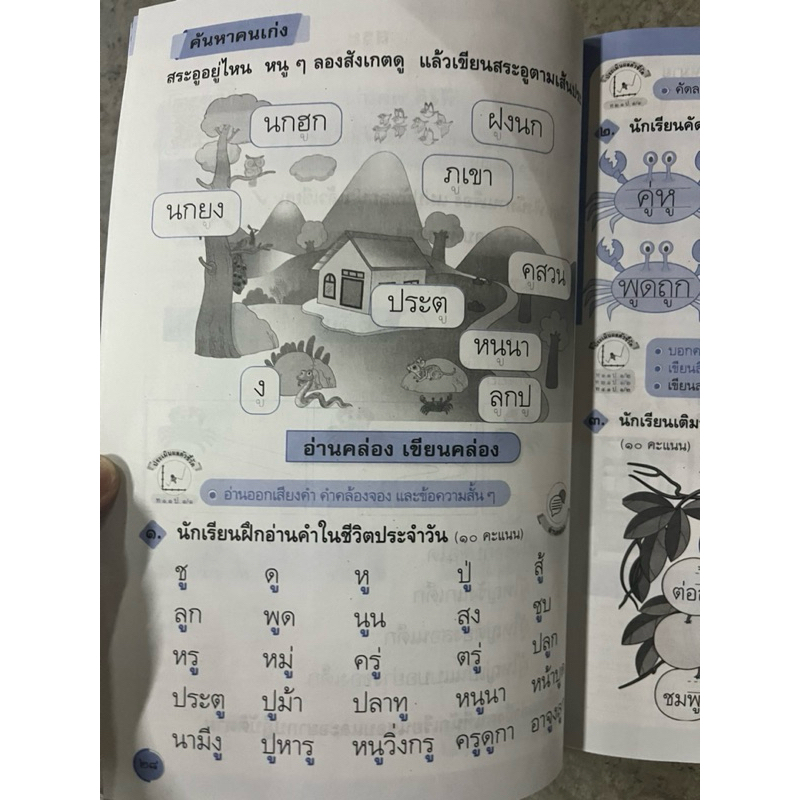 ค้นหาคนเก่ง
สระอูอยู่ไหน หนู ๆ ลองสังเกตดู แล้วเขียนสระอูตามเส้น
นกฮูก
ฝูงนก
ภูเขา
นกยูง
คูสวน
ประตู
หนูนา
งู
ลูกปู
อ่านคล่อง เขียนคล่อง
อ่านออกเสียงคำ คำคล้องจอง และข้อความสั้น ๆ
๑. นักเรียนฝึกอ่านคำในชีวิตประจำวัน (๑๐ คะแนน)
ชู ดู หู ปู่ สู้
ลูก พูด นูน สูง ชูบ
หรู หมู่ ครู่ ตรู่ ปลูก
ประตู ปูม้า ปลาทู หนูนา
นามีงู ปูหารู หนูวิ่งกรู ครูดูกา
๒๘
๑. คัดล
๒. นักเรียนคัด
คู่หู
พูดถูก
บอก
เขียน
เขียน
๓. นักเรียนเติม
(๑๐ คะแนน)
ต่อ
ชมพู